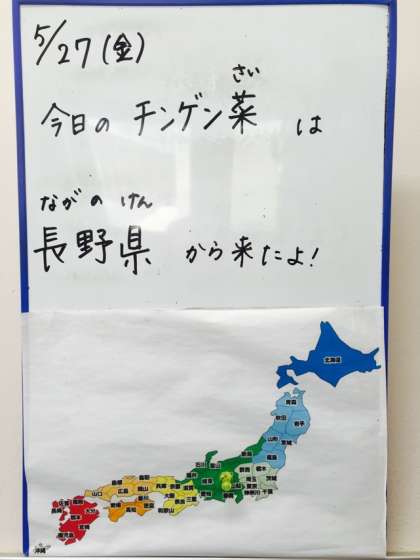 5/27(金)
さい
今日の チンゲン菜 は
ながの けん
長野県 から来たよ!
北海道
青森
秋田
岩手
山形
宮城
福島
新潟
石川
富山
群馬
栃木
福井
岐阜
埼玉
山梨
愛知
静岡
神奈川
千葉
島根
鳥取
兵庫
京都
滋賀
山口
広島
岡山
大阪
三重
奈良
和歌山
愛媛
香川
高知
徳島
佐賀
福岡
長崎
大分
熊本
宮崎
鹿児島
沖縄